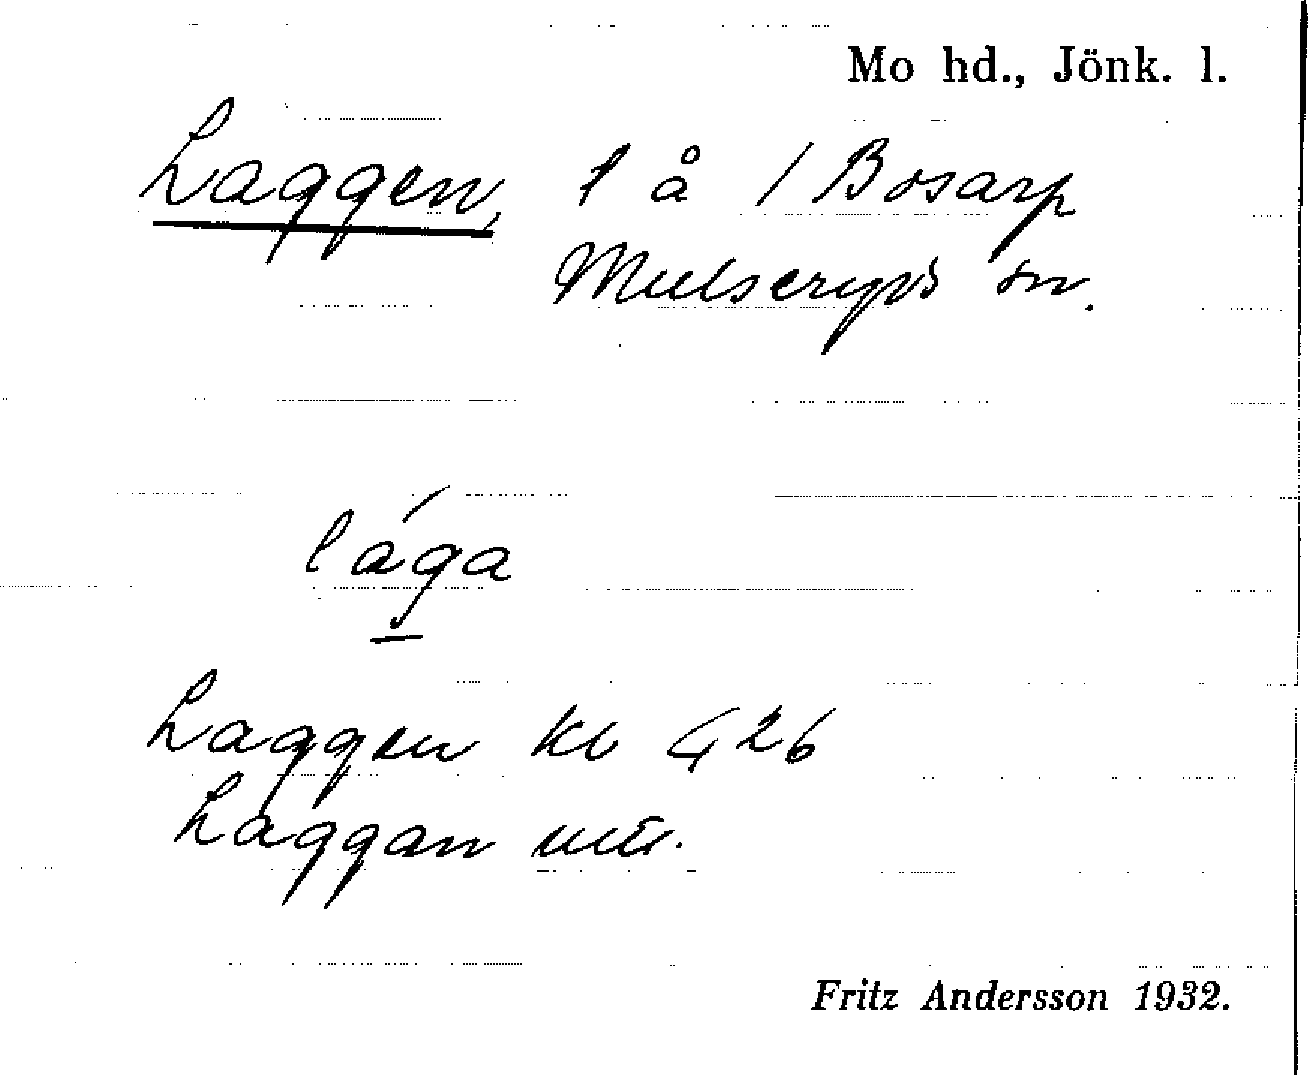 Mo hd., Jönk. l.
Laggen, l å / Bosarp
Mulseryds sn.
lága
Laggen kl 426
Laggan utt.
Fritz Andersson 1932.